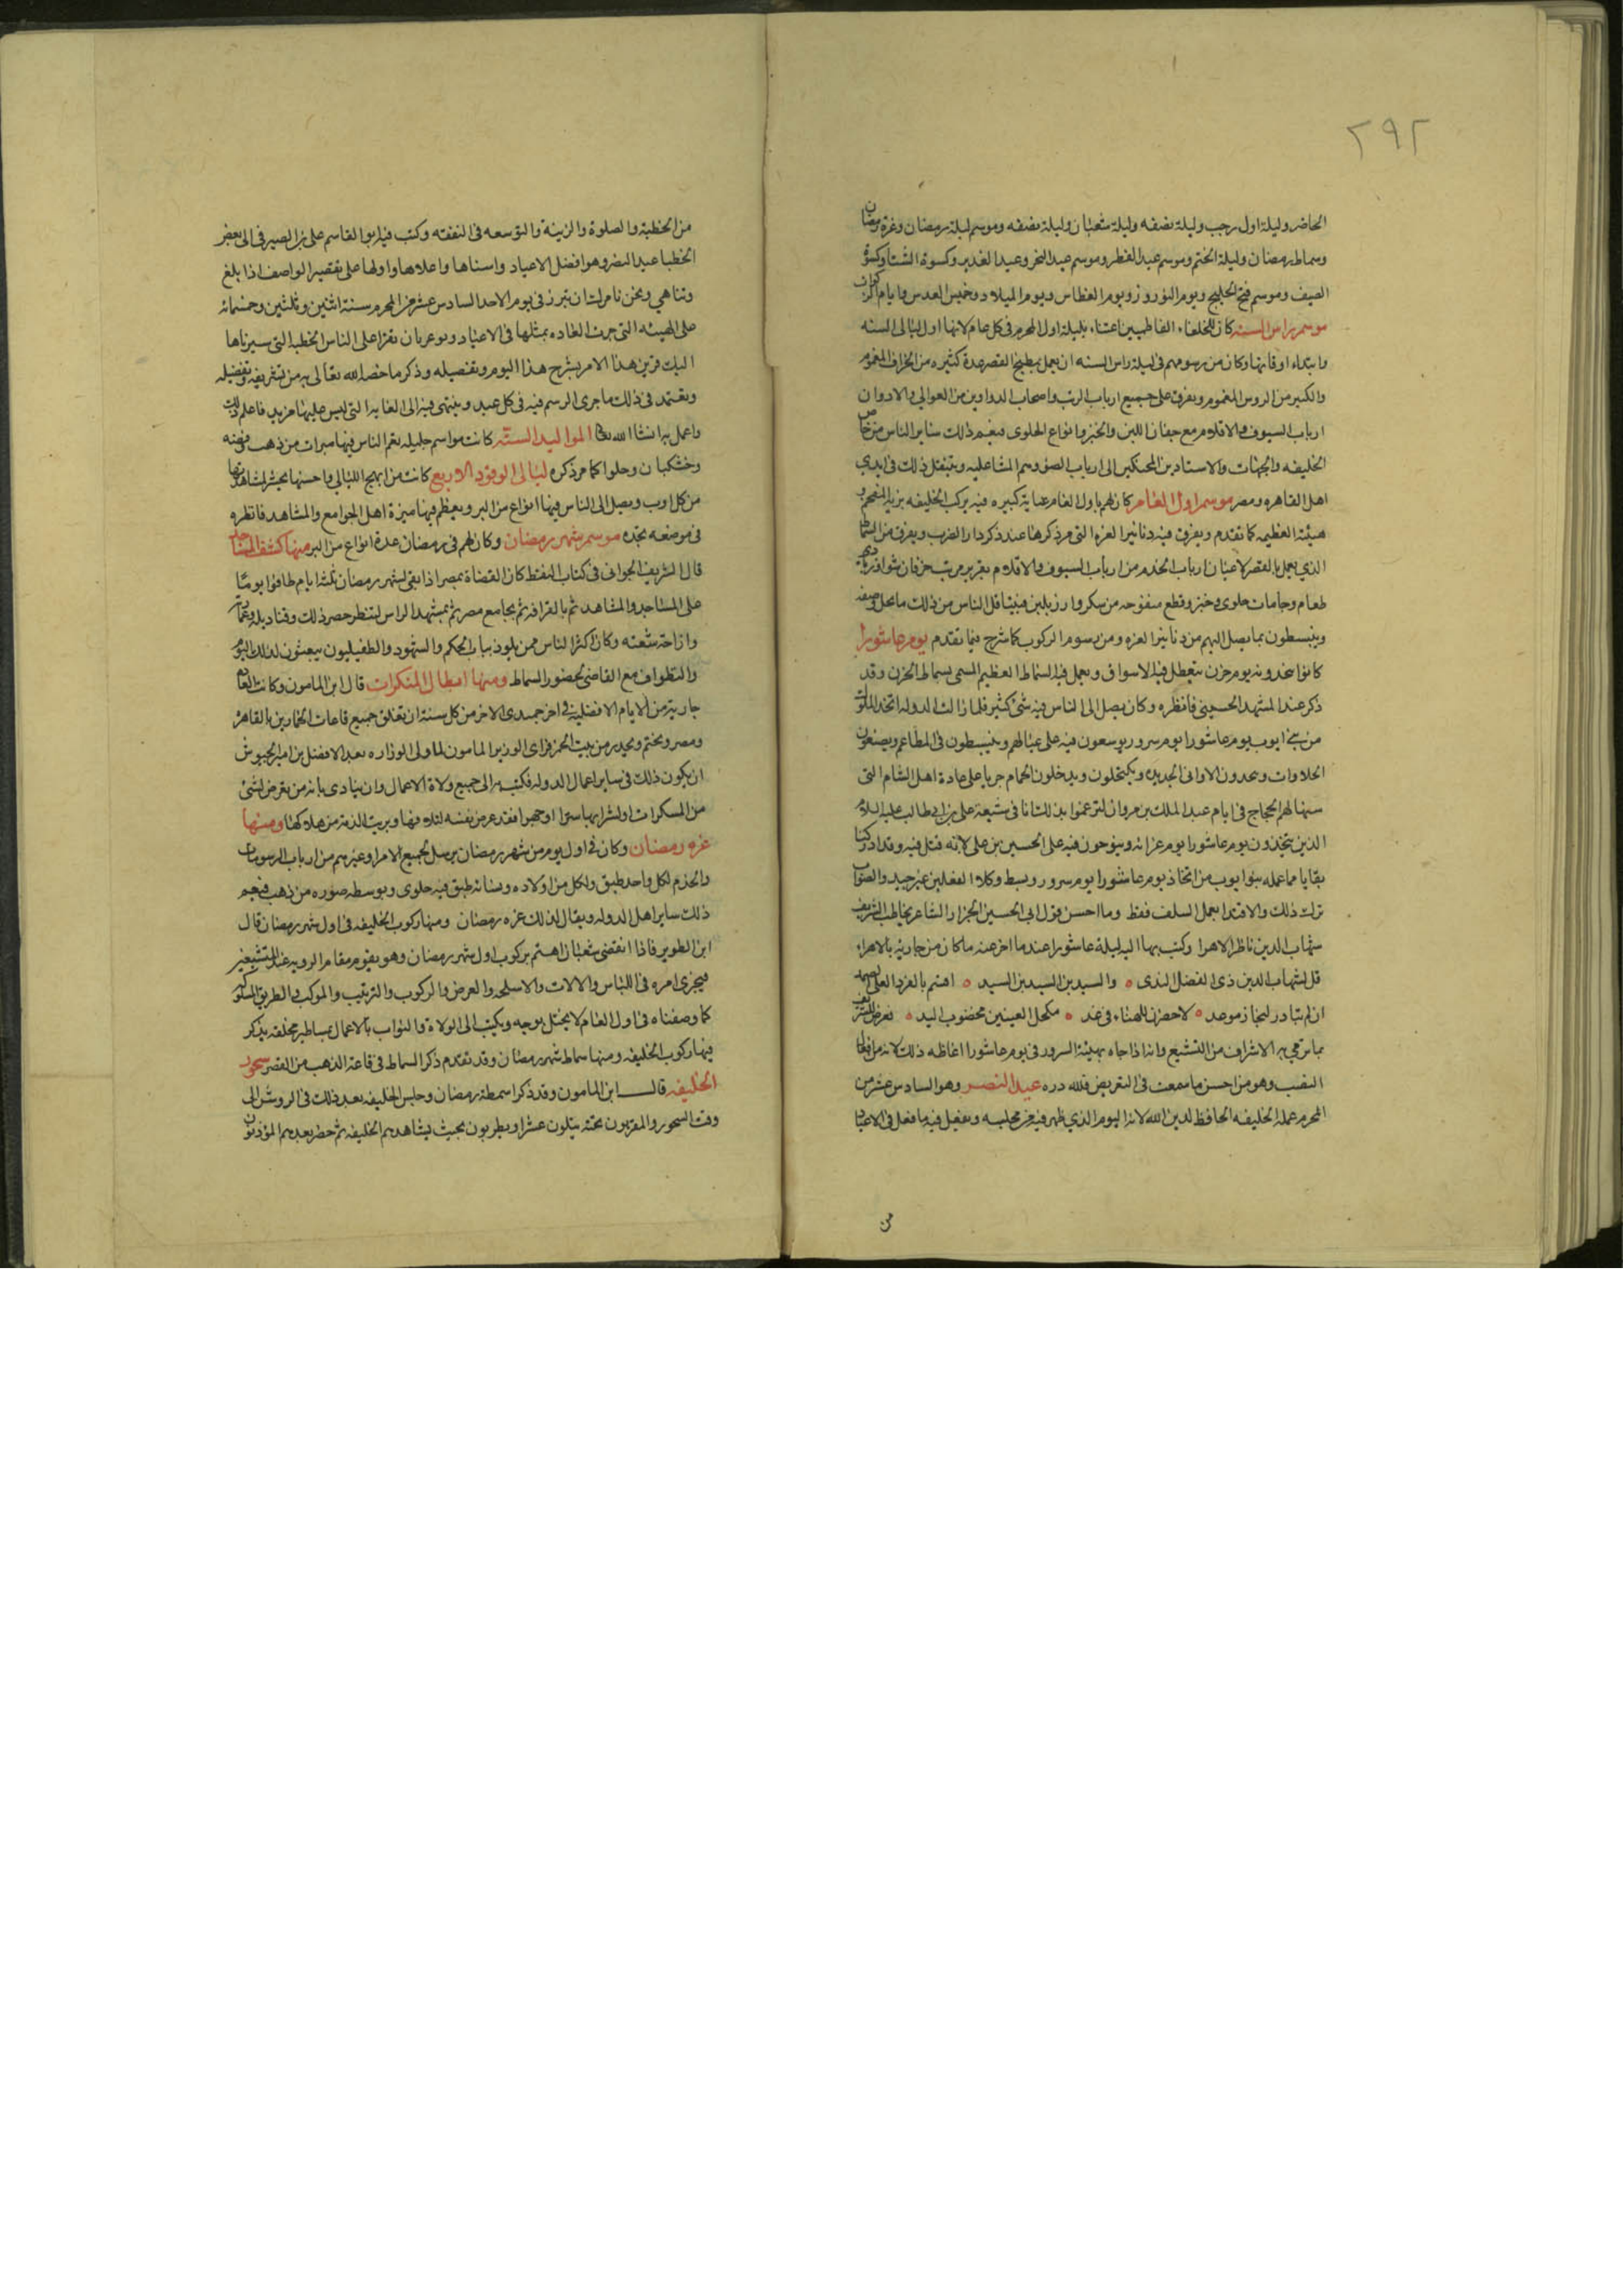 ٢٩٢
الحاضر وليلة اول رجب وليلة نصفه وليلة شعبان وليلة نصفه وموسم ليلة رمضان وغرة رمضان
وسماط رمضان وليلة الختم وموسم عيد الفطر وموسم عيد النحر وعيد الغدير وكسوة الشتا وكسوة
الصيف وموسم فتح الخليج ويوم النوروز ويوم الغطاس ويوم الميلاد وخميس العدس وايام الركوبات
موسم راس السنه كان للخلفاء الفاطميين اعتناء بليلة اول المحرم فى كل عام لانها اول ليالى السنه
وابتداء اوقاتها وكان من رسومهم فى ليلة راس السنه ان يعمل بمطبخ القصر عدة كثيره من الخراف المغموم
والكثير من الروس المغموم ويفرق على جميع ارباب الرتب واصحاب الدواوين من العوالي والادوان
ارباب السيوف والاقلام مع جفان اللبن والخبز وانواع الحلوى فيعم ذلك ساير الناس من خاص
الخليفه والجهات والاستادين المحنكين الى ارباب الضوء وهم المشاعليه ويتنقل ذلك فى ايدي
اهل القاهره ومصر موسم اول العام كان لهم باول العام عناية كبيره فيه يركب الخليفه بزيه المفخم و
هيئته العظيمه كما تقدم ويفرق فيه دنانير الغره التى مر ذكرها عند ذكر دار الضرب ويفرق من السماط
الذي يعمل بالقصر لاعيان ارباب الخدم من ارباب السيوف والاقلام بتقرير مرتب خرفان شوا وزبادى
طعام وجامات حلوى وخبز وقطع منفوخه من سكر وارز بلبن فيتناقل الناس من ذلك ما يجل وصفه
وينبسطون بما يصل اليهم من دنانير الغره ومن رسوم الركوب كما شرح فيما تقدم يوم عاشورا
كانوا يتخذونه يوم حزن تتعطل فيه الاسواق ويعمل فيه السماط العظيم المسمى بسماط الحزن وقد
ذكر عند المشهد الحسيني فانظره وكان يصل الى الناس فيه شئ كثير فلما زالت الدوله اتخذ الملوك
من بنى ايوب يوم عاشورا يوم سرور يوسعون فيه على عيالهم وينبسطون فى المطاعم ويصنعون
الحلاوات ويجددون الاوانى الجديده ويكتحلون ويدخلون الحمام جريا على عادة اهل الشام التى
سنها لهم الحجاج فى ايام عبد الملك بن مروان ليرغموا بذلك اناف شيعة على بن ابى طالب عليه السلام
الذين يتخذون يوم عاشورا يوم عزاء وينوحون فيه على الحسين بن على لانه قتل فيه وقد ادركنا
بقايا مما عمله بنوا ايوب من اتخاذ يوم عاشورا يوم سرور وبسط وكلا الفعلين غير جيد والصواب
ترك ذلك والاقتدا بعمل السلف فقط وما احسن قول ابى الحسين الجزار الشاعر يخاطب الشريف
شهاب الدين ناظر الاهرا وكتب بها اليه ليلة عاشورا عندما اخر عنه ما كان من جاريه بالاهراء
قل لشهاب الدين ذى الفضل الندى ۰ والسيد بن السيد بن السيد ۰ اقسم بالفرد العلى الصمد
ان لم تبادر لنجاز موعدى ۰ لاحضرن للهناء فى غد ۰ مكحل العينين مخضوب اليد ۰ تعرض للشريف
بما ترمي به الاشراف من التشيع وانه اذا جاه بهيئة السرور فى يوم عاشورا اغاظه ذلك لانه من افعال
النصب وهو من احسن ما سمعت فى التعريض فلله دره عيد النصر وهو السادس عشر من
المحرم عمله الخليفه الحافظ لدين الله لانه اليوم الذي ظهر فيه من محبسه ويفعل فيه ما يفعل فى الاعياد
من
من الخطبة والصلوة والزينة والتوسعه فى النفقه وكتب فيه ابو القاسم على بن الصيرفى الى بعض
الخطبا عيد النصر وهو افضل الاعياد واسناها واعلاها واولها على تقصير الواصف اذا بلغ
وتناهي ونحن نامرك ان تبرز فى يوم الاحد السادس عشر من المحرم سنة اثنين وثلثين وخمسمائه
على الهيئه التى جرت العاده بمثلها فى الاعياد وتوعز بان تقرا على الناس الخطبه التى سيرناها
اليك قرين هذا الامر بشرح هذا اليوم وتفصيله وذكر ما خصه الله تعالى به من تشريفه وتفضيله
وتعتمد فى ذلك ما جرى الرسم فيه فى كل عيد وينتهى فيه الى الغايه التى ليس عليها مزيد فاعلم ذلك
واعمل به ان شا الله تعا الموا ليد الستة كانت مواسم جليله يعم الناس فيها مبرات من ذهب وفضه
وخشكنان وحلوا كما مر ذكره ليالى الوقود الاربع كانت من ابهج الليالي واحسنها يحشر لمشاهدتها
من كل اوب ويصل الى الناس فيها انواع من البر ويعظم فيها ميزة اهل الجوامع والمشاهد فانظره
فى موضعه تجده موسم شهر رمضان وكان لهم فى رمضان عدة انواع من البر منها كشف المساجد
قال الشريف الجوانى فى كتاب النقط كان القضاة بمصر اذا بقى لشهر رمضان ثلثة ايام طافوا يوما
على المساجد والمشاهد ثم بالقرافه ثم بجامع مصر ثم بمشهد الراس لنظر حصر ذلك وقناديله وعمارته
وازاحة شعثه وكان اكثر الناس ممن يلوذ بباب الحكم والشهود والطفيليون يبعثون لذلك اليوم
والتطواف مع القاضى لحضور السماط ومنها ابطال المنكرات قال ابن المامون وكانت العاده
جارية من الايام الافضليه فى اخر جمدى الاخر من كل سنة ان تغلق جميع قاعات الخمارين بالقاهرة
ومصر وتختم ويحذر من بيع الخمر فراى الوزير المامون لما ولى الوزاره بعد الافضل بن امير الجيوش
ان يكون ذلك فى ساير اعمال الدوله فكتب به الى جميع ولاة الاعمال وان ينادى بانه من تعرض لشئ
من المسكرات او لشرابها سرا او جهرا فقد عرض نفسه لتلافها وبريت الذمة من هلاكها ومنها
غره رمضان وكان فى اول يوم من شهر رمضان يرسل لجميع الامرا وغيرهم من ارباب الرسومات
والخدم لكل واحد طبق ولكل من اولاده ونسائه طبق فيه حلوى وبوسطه صوره من ذهب فيعم
ذلك ساير اهل الدوله ويقال لذلك غره رمضان ومنها ركوب الخليفه فى اول شهر رمضان قال
ابن الطوير فاذا انقضى شعبان اهتم بركوب اول شهر رمضان وهو يقوم مقام الرويه عند المتشيعين
فيجرى امره فى اللباس والالات والاسلحه والعرض والركوب والترتيب والموكب والطريق المسلوكه
كما وصفناه فى اول العام لا يختل بوجه ويكتب الى الولاة والنواب بالاعمال بمساطير مخلقه يذكر
فيها ركوب الخليفه ومنها سماط شهر رمضان وقد تقدم ذكر السماط فى قاعة الذهب من القصر سحور
الخليفه قال ابن المامون وقد ذكر اسمطة رمضان وجلس الخليفه بعد ذلك فى الروشن الى
وقت السحور والمقربون تحته يتلون عشرا ويطربون بحيث يشاهدهم الخليفه ثم حضر بعدهم المؤذنون